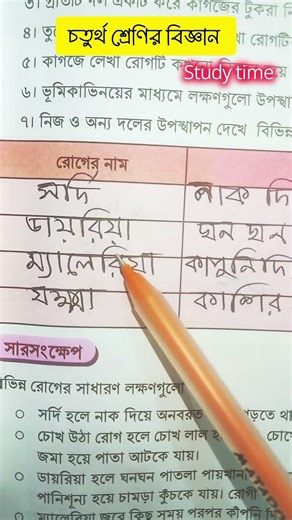 ৩। প্রতিটি দল একটি করে কাগজের টুকরা নি
চতুর্থ শ্রেণির বিজ্ঞান
৪। তু খা রোগটি
৫। কাগজে লেখা রোগটি
Study time
৬। ভূমিকাভিনয়ের মাধ্যমে লক্ষণগুলো উপস্থা
৭। নিজ ও অন্য দলের উপস্থাপন দেখে বিভিন্ন
রোগের নাম
সর্দি নাক দি
ডায়রিয়া ঘন ঘন
ম্যালেরিয়া কাপুনিদি
যক্ষ্মা কাশির
সারসংক্ষেপ
ভিন্ন রোগের সাধারণ লক্ষণগুলো
○ সর্দি হলে নাক দিয়ে অনবরত ড়তে থা
○ চোখ উঠা রোগ হলে চোখ লাল হ চোখে
জমা হয়ে পাতা আটকে যায়।
○ ডায়রিয়া হলে ঘনঘন পাতলা পায়খান
পানিশূন্য হয়ে চামড়া কুঁচকে যায়। রোগী
○ ম্যালেরিয়া জ্বরে কিছু সময় পরপর কাঁপনি দি